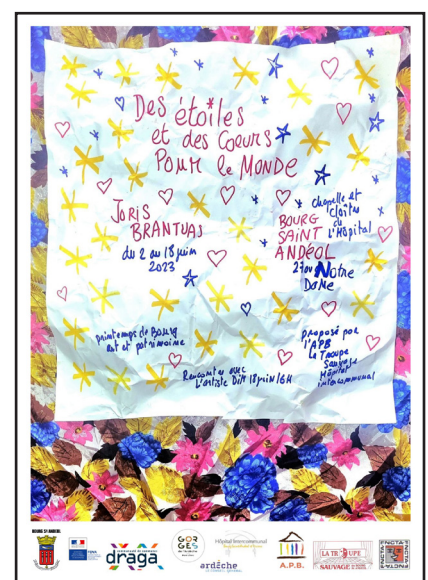 Des étoiles
et des Coeurs
Pour le MONDE
JORIS
BRANTUAS
du 2 au 18 juin
2023
chapelle et
cloître
de
l'Hôpital
BOURG
SAINT
ANDÉOL
27 av Notre
Dame
printemps de Bourg
art et patrimoine
Rencontre avec
l'artiste Dim 18 juin 16H
proposé par
l'APB
La Troupe
Sauvage
Hôpital
intercommunal
BOURG ST ANDEOL
draga
GOR
GES
Hôpital Intercommunal
ardèche
A.P.B.
LA TROUPE
SAUVAGE